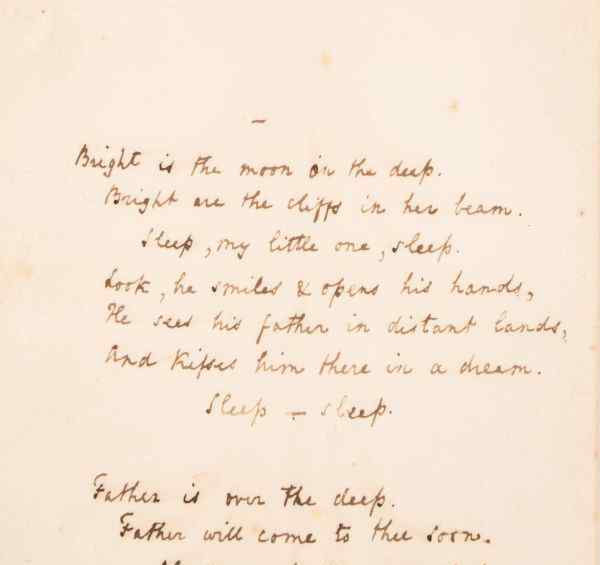 Bright is the moon on the deep.
Bright are the cliffs in her beam.
Sleep, my little one, sleep.
Look, he smiles & opens his hands,
He sees his father in distant lands,
And kisses him there in a dream.
Sleep – sleep.
Father is over the deep.
Father will come to thee soon.